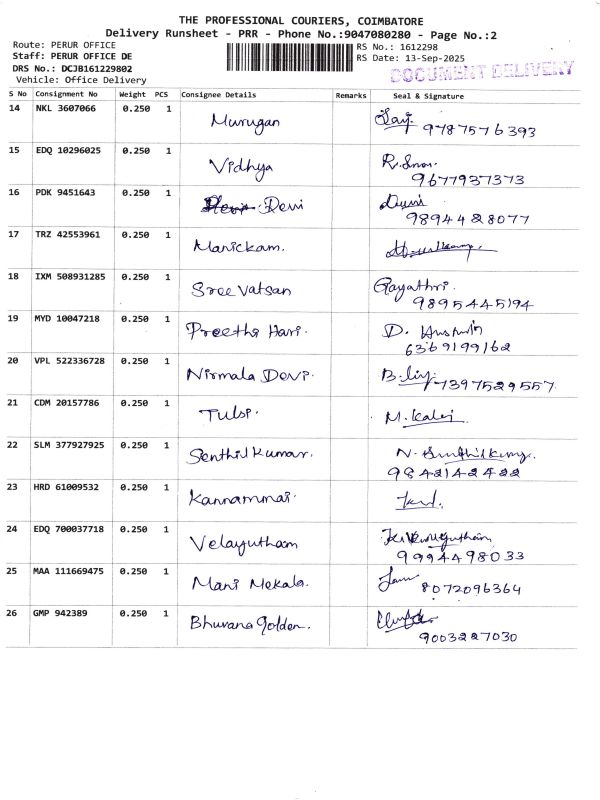 THE PROFESSIONAL COURIERS, COIMBATORE
Delivery Runsheet - PRR - Phone No.:9047080280 - Page No.:2
Route: PERUR OFFICE
Staff: PERUR OFFICE DE
DRS No.: DCJB161229802
Vehicle: Office Delivery
RS No.: 1612298
RS Date: 13-Sep-2025
DOCUMENT DELIVERY
S No Consignment No Weight PCS Consignee Details Remarks Seal & Signature
14 NKL 3607066 0.250 1 Murugan
9787576393
15 EDQ 10296025 0.250 1 Vidhya
9677937373
16 PDK 9451643 0.250 1 Devi
9894428077
17 TRZ 42553961 0.250 1 Manickam.
18 IXM 508931285 0.250 1 Sree Vatsan Gayathri.
9895445194
19 MYD 10047218 0.250 1 Preetha Hari. D.
6369199162
20 VPL 522336728 0.250 1 Nirmala Devi.
7397529557
21 CDM 20157786 0.250 1 Tulsi. M. Kalai
22 SLM 377927925 0.250 1 Senthil Kumar. N. Senthilkumar.
9842142422
23 HRD 61009532 0.250 1 Kannammai.
24 EDQ 700037718 0.250 1 Velayutham
9994498033
25 MAA 111669475 0.250 1 Mani Mekala.
8072096364
26 GMP 942389 0.250 1 Bhuvana golden.
9003227030